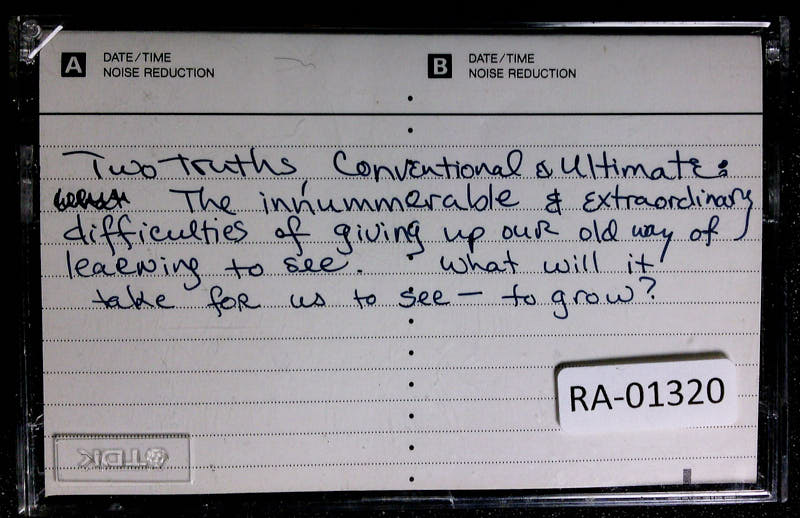 A DATE/TIME
NOISE REDUCTION
B DATE/TIME
NOISE REDUCTION
Two truths, Conventional & Ultimate:
The innummerable & extraordinary
difficulties of giving up our old way of
learning to see. What will it
take for us to see — to grow?
RA-01320
TDK